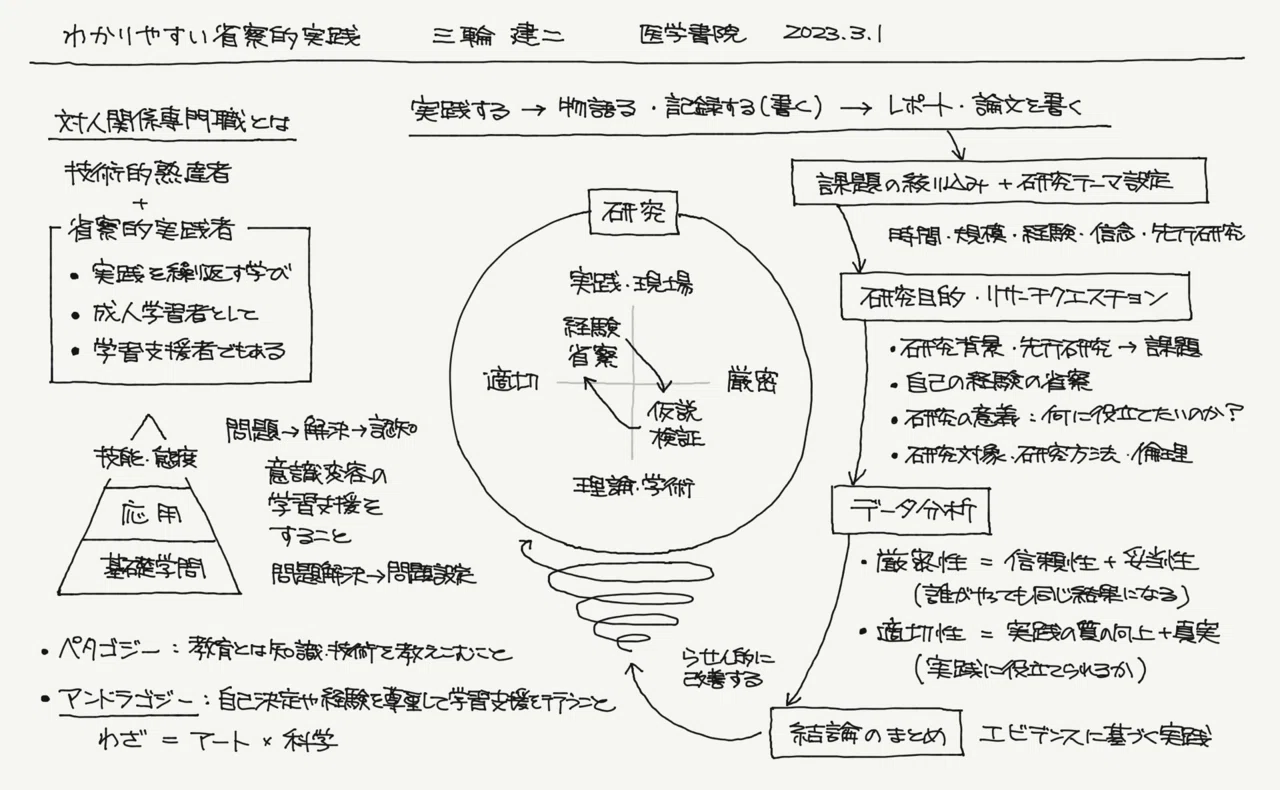 わかりやすい省察的実践 三輪 建二 医学書院 2023.3.1
対人関係専門職とは
技術的熟達者
+
省察的実践者
• 実践を繰り返す学び
• 成人学習者として
• 学習支援者でもある
技能・態度
応用
基礎学問
問題→解決→認知
意識変容の
学習支援を
すること
問題解決→問題設定
• ペタゴジー：教育とは知識・技術を教えこむこと
• アンドラゴジー：自己決定や経験を尊重して学習支援を行うこと
わざ = アート × 科学
実践する → 物語る・記録する(書く) → レポート・論文を書く
研究
実践・現場
経験
省察
適切
厳密
仮説
検証
理論・学術
らせん的に
改善する
課題の絞り込み + 研究テーマ設定
時間・規模・経験・信念・先行研究
研究目的・リサーチクエスチョン
• 研究背景・先行研究 → 課題
• 自己の経験の省察
• 研究の意義：何に役立てたいのか?
• 研究対象・研究方法・倫理
データ分析
• 厳密性 = 信頼性 + 妥当性
(誰がやっても同じ結果になる)
• 適切性 = 実践の質の向上 + 真実
(実践に役立てられるか)
結論のまとめ エビデンスに基づく実践